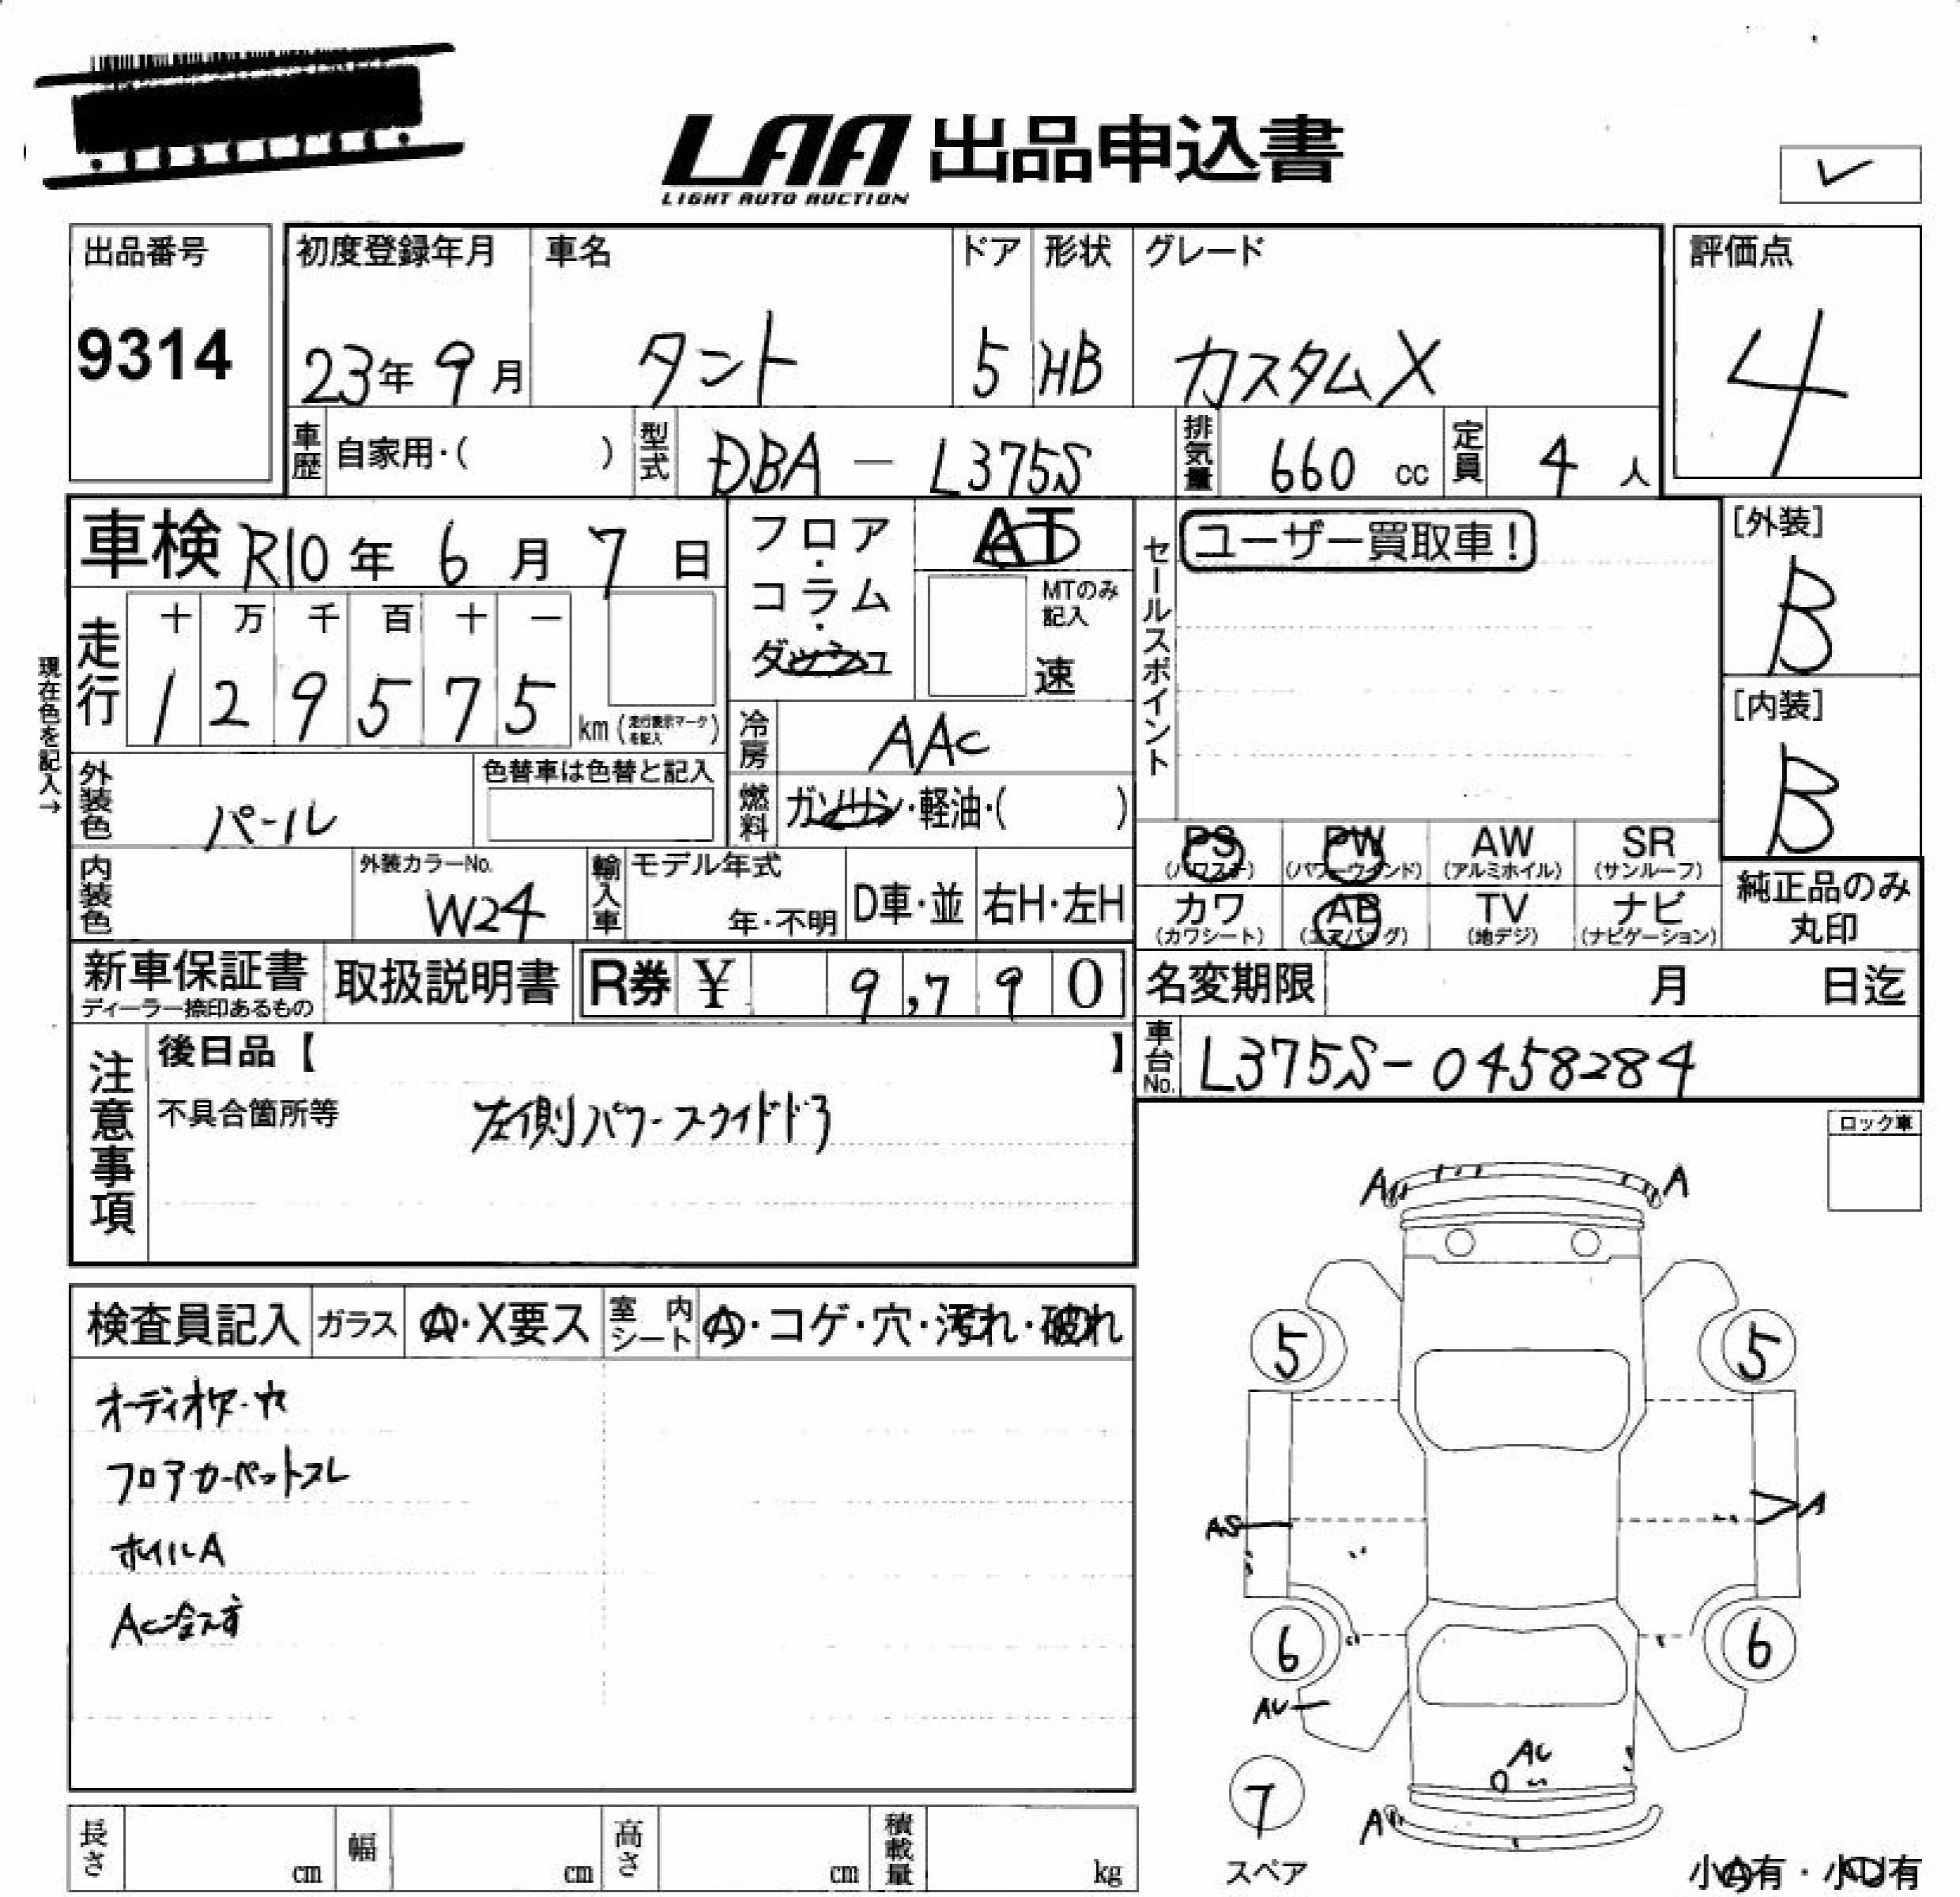 LAA 出品申込書
LIGHT AUTO AUCTION
出品番号
9314
初度登録年月
23年 9月
車名
タント
ドア
5
形状
HB
グレード
カスタムX
評価点
4
車歴 自家用・( )
型式 DBA - L375S
排気量 660 cc
定員 4 人
車検 R10年 6月 7日
フロア・コラム・ダッシュ
AT
MTのみ記入
速
セールスポイント
ユーザー買取車!
[外装]
B
[内装]
B
現在色を記入→
走行
十 万 千 百 十 一
1 2 9 5 7 5
km (走行表示マークを記入)
冷房 AAC
外装色 パール
色替車は色替と記入
燃料 ガソリン・軽油・( )
PS (パワステ)
PW (パワーウインド)
AW (アルミホイル)
SR (サンルーフ)
カワ (カワシート)
AB (エアバッグ)
TV (地デジ)
ナビ (ナビゲーション)
純正品のみ丸印
内装色
外装カラーNo.
W24
輸入車
モデル年式
年・不明
D車・並
右H・左H
新車保証書
ディーラー捺印あるもの
取扱説明書
R券 ¥ 9,790
名変期限 月 日迄
車台No. L375S-0458284
注意事項
後日品【 】
不具合箇所等
左側パワースライドドア
ロック車
検査員記入
ガラス A・X要ス
室内シート A・コゲ・穴・汚れ・破れ
フロアカーペットスレ
ホイルA
AC冷えず
A
A
5
5
AS
A
6
6
AU
AC
A
7
スペア
長さ cm
幅 cm
高さ cm
積載量 kg
小A有・小U有